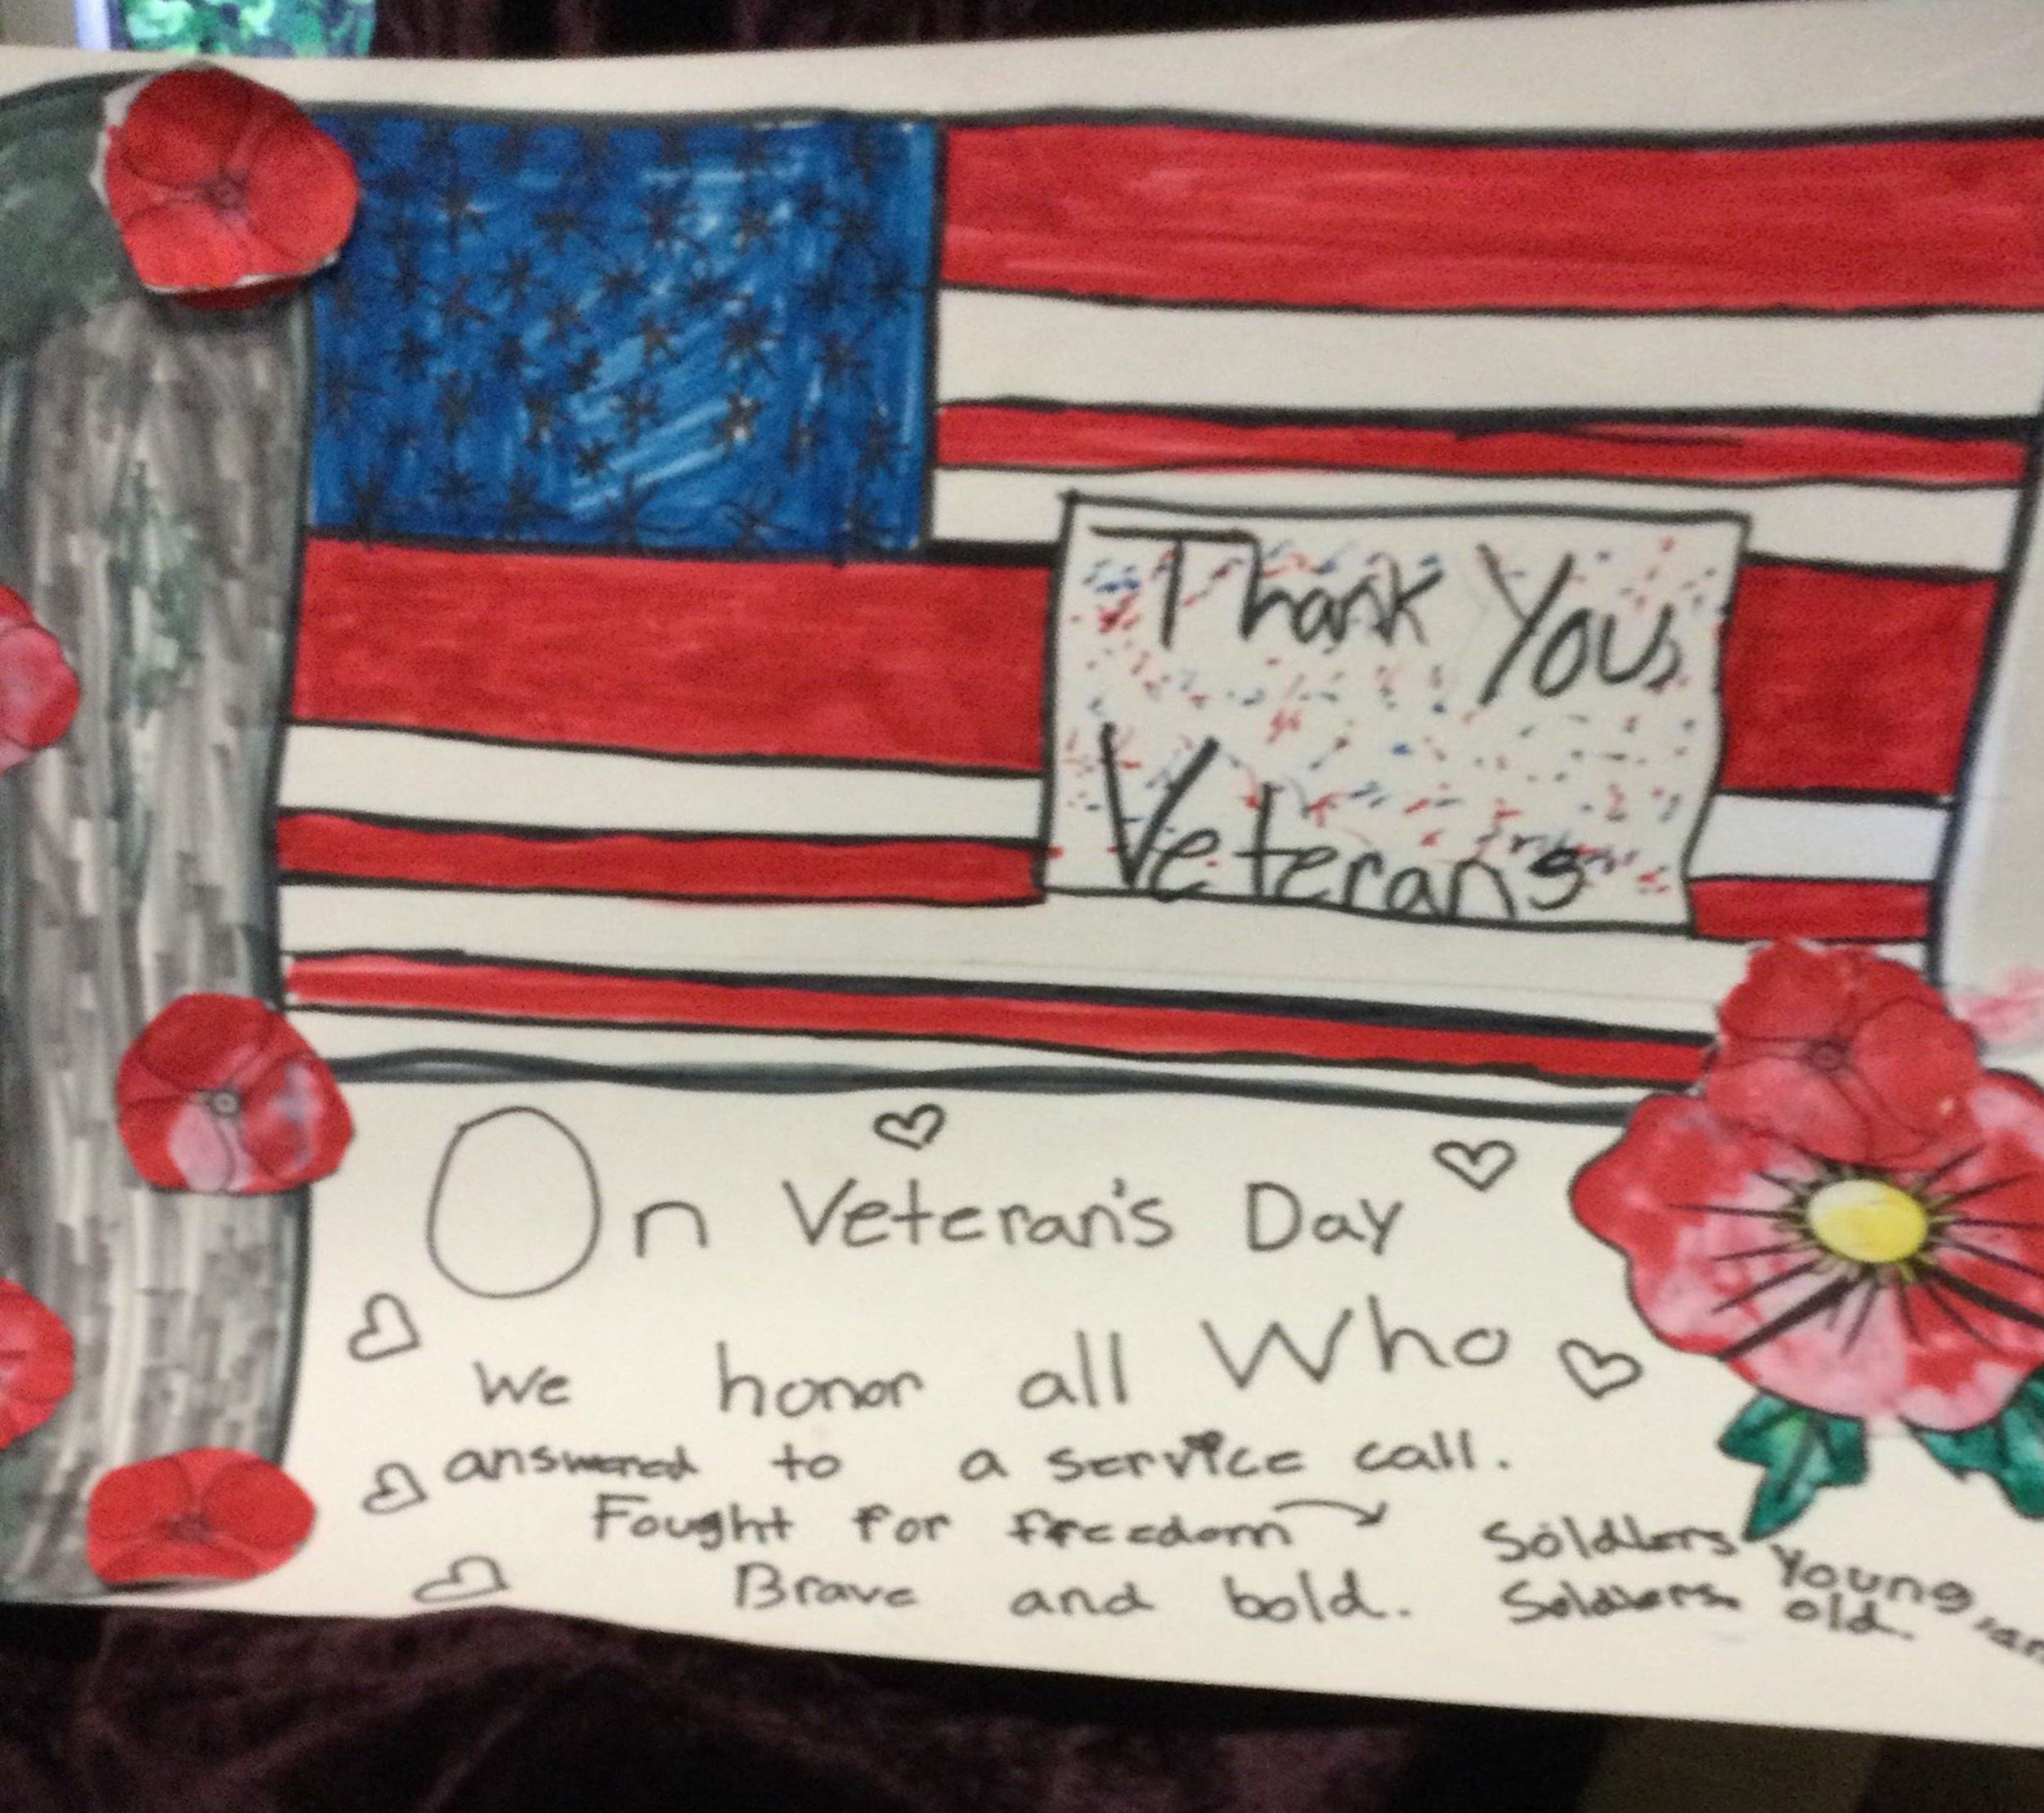 Thank You,
Veterans
On Veteran's Day
We honor all Who
answered to a service call.
Fought for freedom Soldiers Young
Brave and bold. Soldiers old.